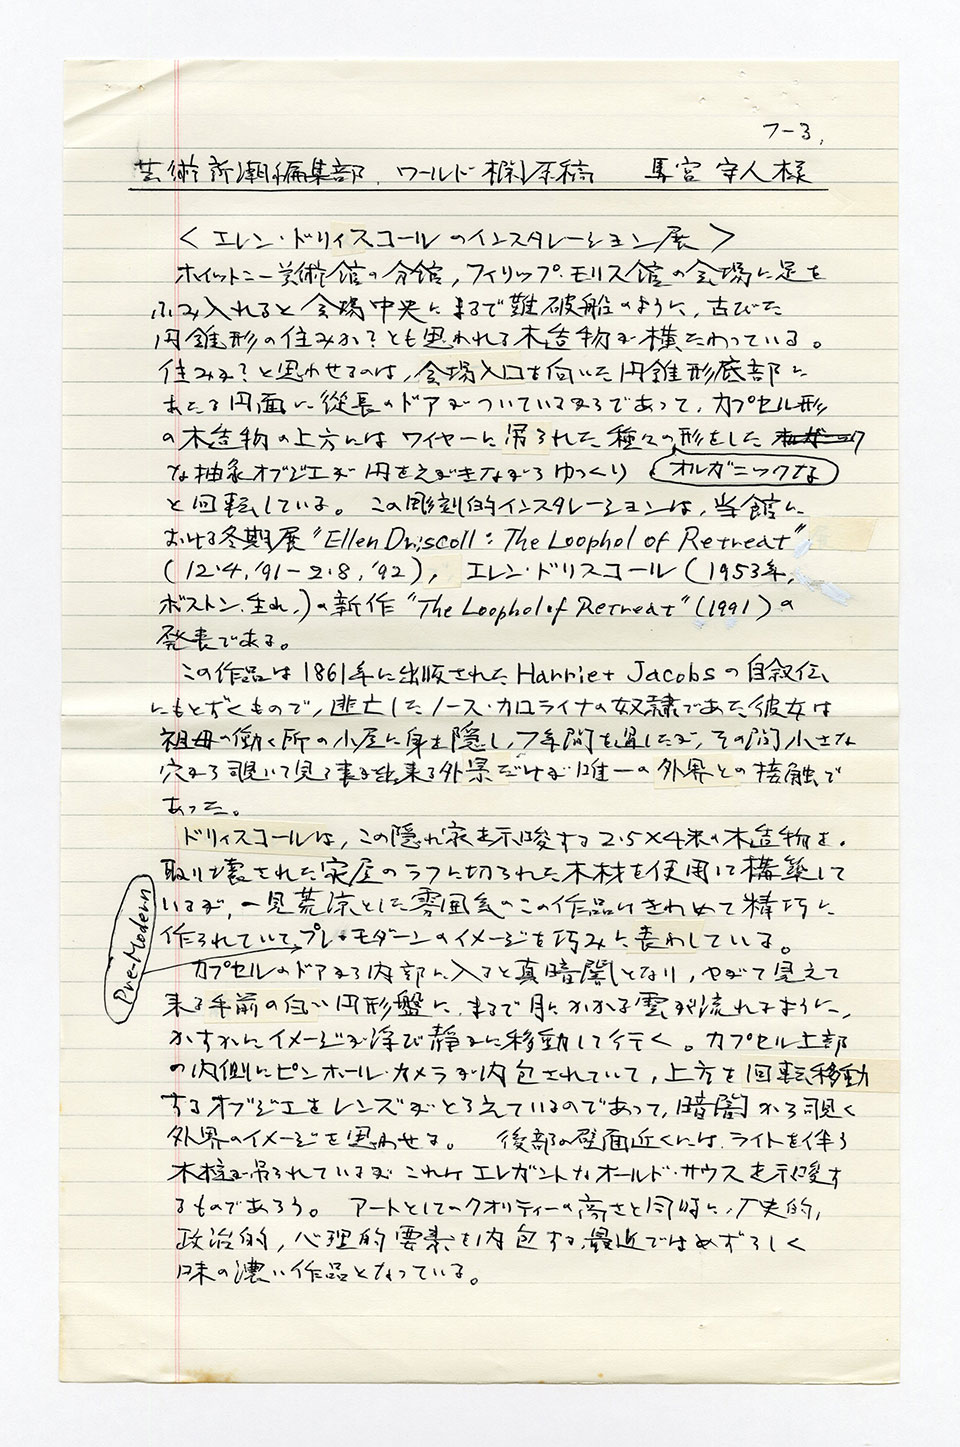 7-3,
芸術新潮編集部、ワールド欄原稿 馬宮守人様
〈エレン・ドリィスコールのインスタレーション展〉
ホイットニー美術館の分館，フィリップ・モリス館の会場に足を
ふみ入れると会場中央にまるで難破船のように，古びた
円錐形の住みか？とも思われる木造物が横たわっている。
住みか？と思わせるのは，会場入口を向いた円錐形底部に
あたる円面に従長のドアがついているからであって，カプセル形
の木造物の上方にはワイヤーに吊られた種々の形をした
な抽象オブジェが円をえがきながらゆっくり オルガニックな
と回転している。この彫刻的インスタレーションは，当館に
おける冬期展"Ellen Driscoll : The Loophol of Retreat"
(12・4,'91－2・8,'92)， エレン・ドリスコール(1953年,
ボストン,生れ,)の新作"The Loophol of Retreat"(1991)の
発表である。
この作品は1861年に出版されたHarriet Jacobsの自叙伝
にもとずくもので，逃亡したノース・カロライナの奴隷であった彼女は
祖母の働く所の小屋に身を隠し，7年間を過したが，その間小さな
穴から覗いて見る事が出来る外景だけが唯一の外界との接触で
あった。
ドリィスコールは，この隠れ家を示唆する2.5×4米の木造物を，
取り壊された家屋のラフに切られた木材を使用して構築して
いるが，一見荒涼とした雰囲気のこの作品はきわめて精巧に
作られていて，プレ・モダーンのイメージを巧みに表わしている。
Pre-Modern
カプセルのドアから内部に入ると真暗闇となり，やがて見えて
来る手前の白い円形盤に，まるで月にかかる雲が流れるように，
かすかにイメージが浮び静かに移動して行く。カプセル上部
の内側にピンホール・カメラが内包されていて，上方を回転移動
するオブジェをレンズがとらえているのであって，暗闇から覗く
外界のイメージを思わせる。 後部の壁面近くには，ライトを伴う
木柱が吊られているが これはエレガントなオールド・サウスを示唆す
るものであろう。 アートとしてのクオリティーの高さと同時に，歴史的，
政治的，心理的要素を内包する，最近ではめずらしく
味の濃い作品となっている。